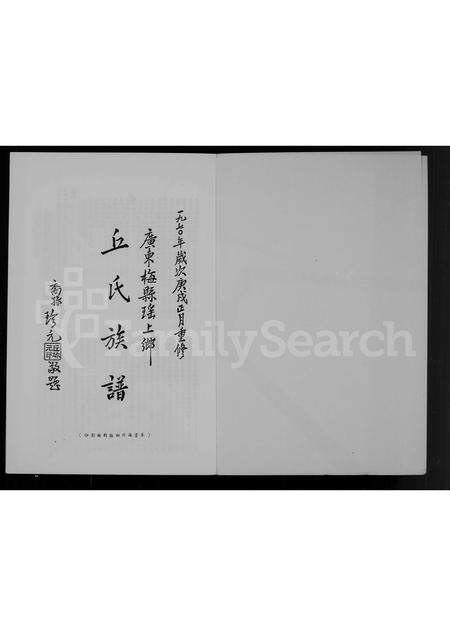 一九七〇年歲次庚戌正月重修
廣東梅縣瑤上鄉
丘氏族譜
裔孫珍元敬題
FamilySearch